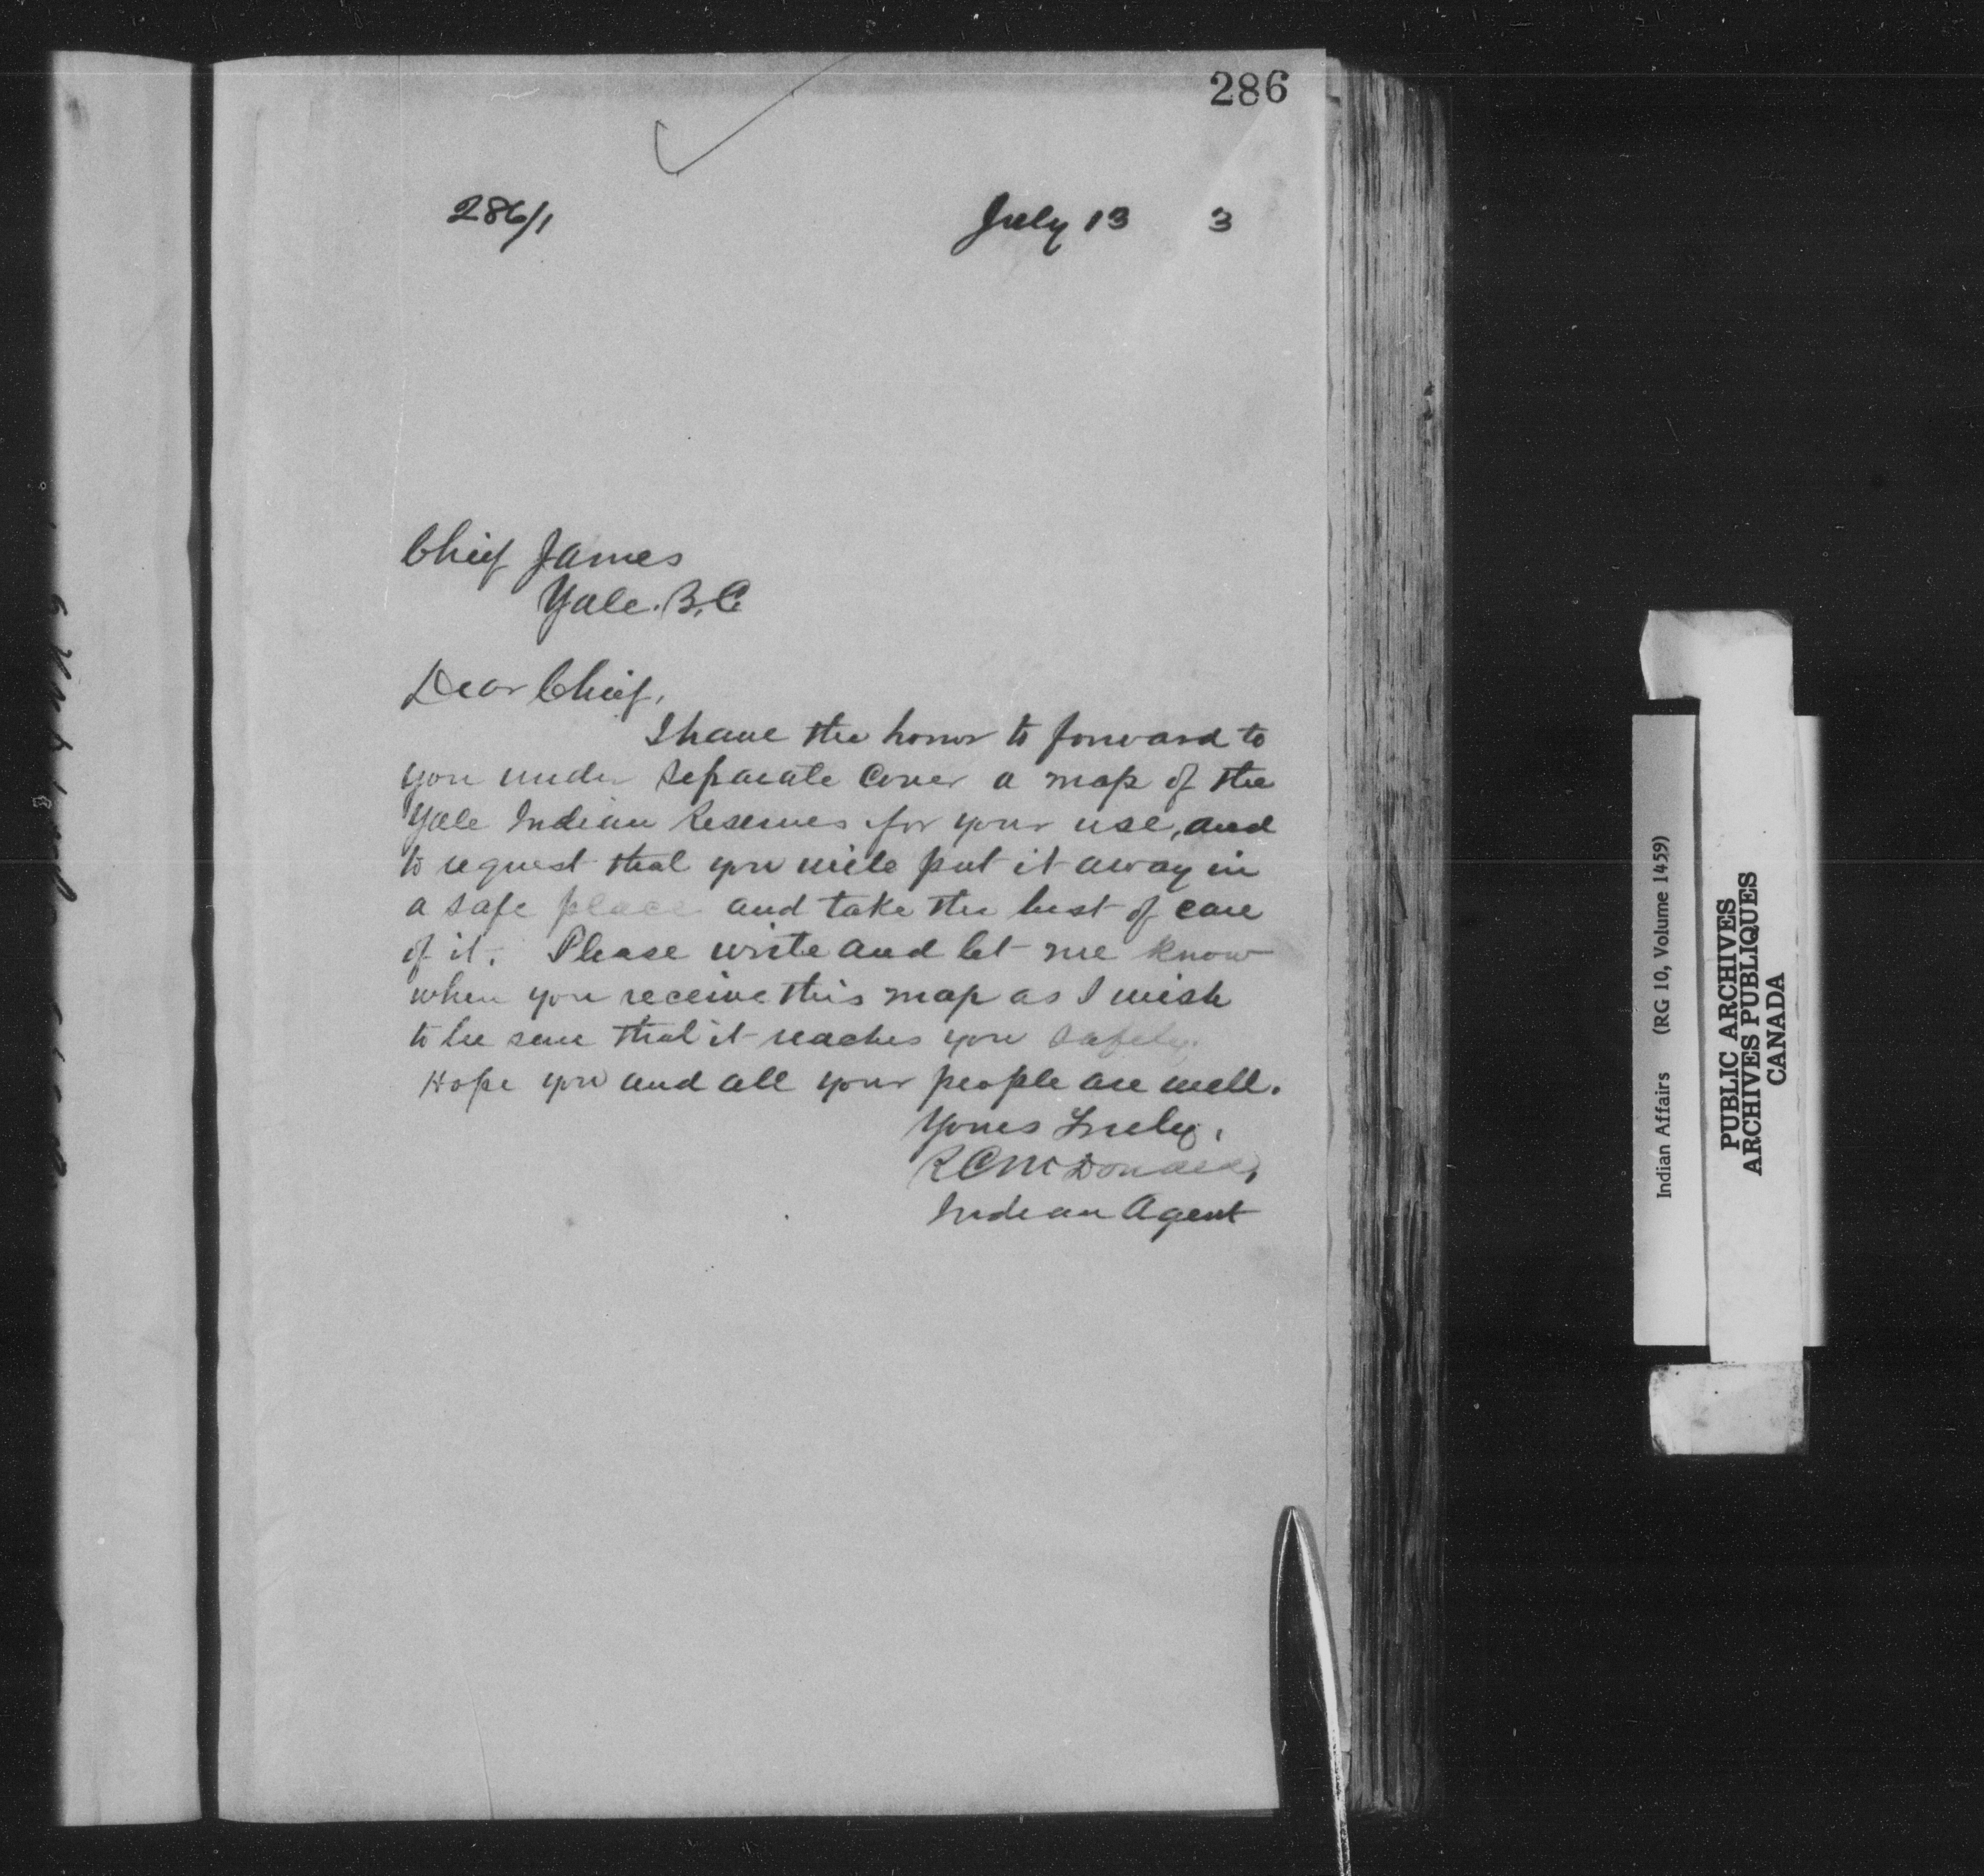 286
286/1 July 13 3
Chief James
Yale. B.C.
Dear Chief,
I have the honor to forward to
you under separate cover a map of the
Yale Indian Reserves for your use, and
to request that you will put it away in
a safe place and take the best of care
of it. Please write and let me know
when you receive this map as I wish
to be sure that it reaches you safely.
Hope you and all your people are well.
Yours Truly,
R C McDonald,
Indian Agent
Indian Affairs (RG 10, Volume 1459)
PUBLIC ARCHIVES
ARCHIVES PUBLIQUES
CANADA